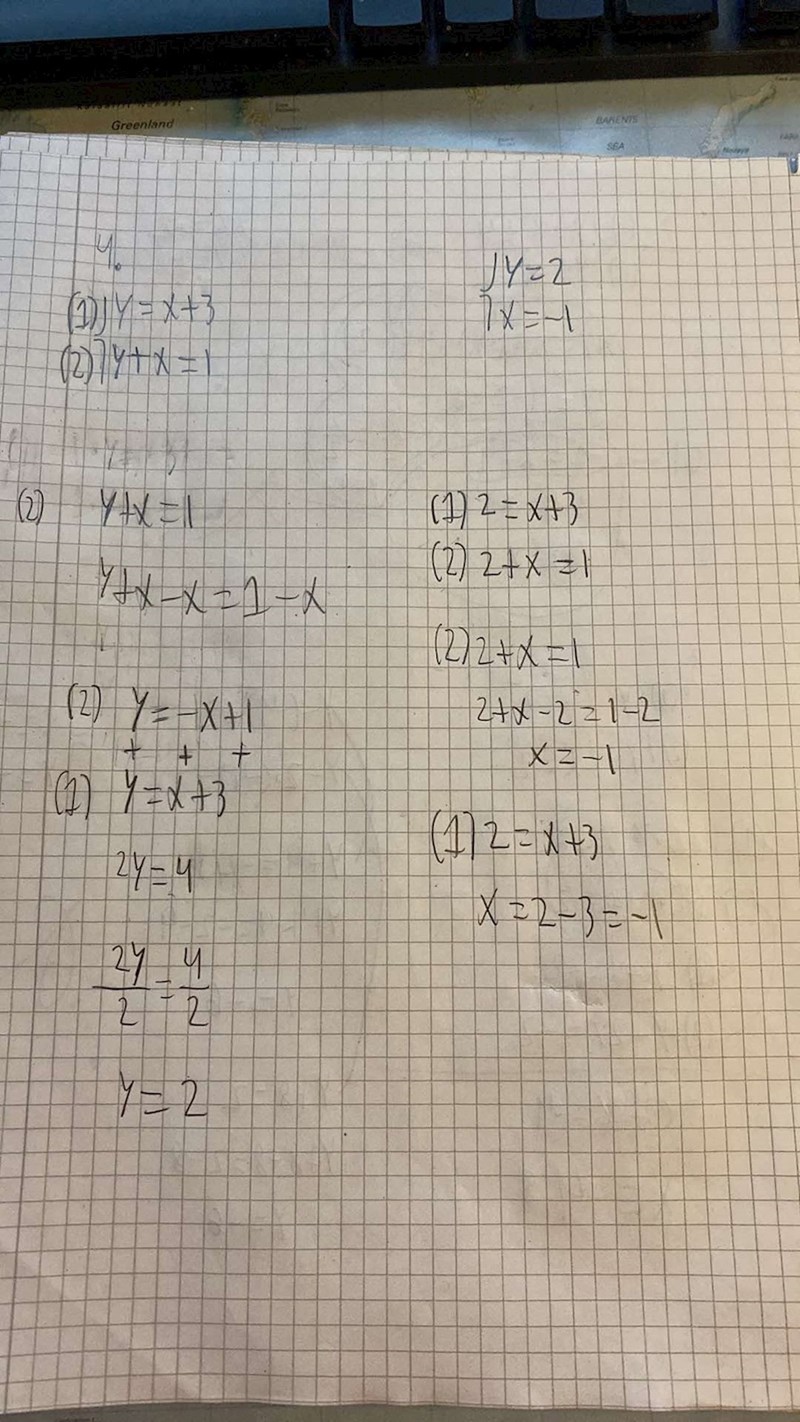 Greenland
BARENTS
SEA
4.
(1) y=x+3
(2) y+x=1
(2) y+x=1
y+x-x=1-x
(2) y=-x+1
+ + +
(1) y=x+3
2y=4
2y/2=4/2
y=2
y=2
x=-1
(1) 2=x+3
(2) 2+x=1
(2) 2+x=1
2+x-2=1-2
x=-1
(1) 2=x+3
x=2-3=-1